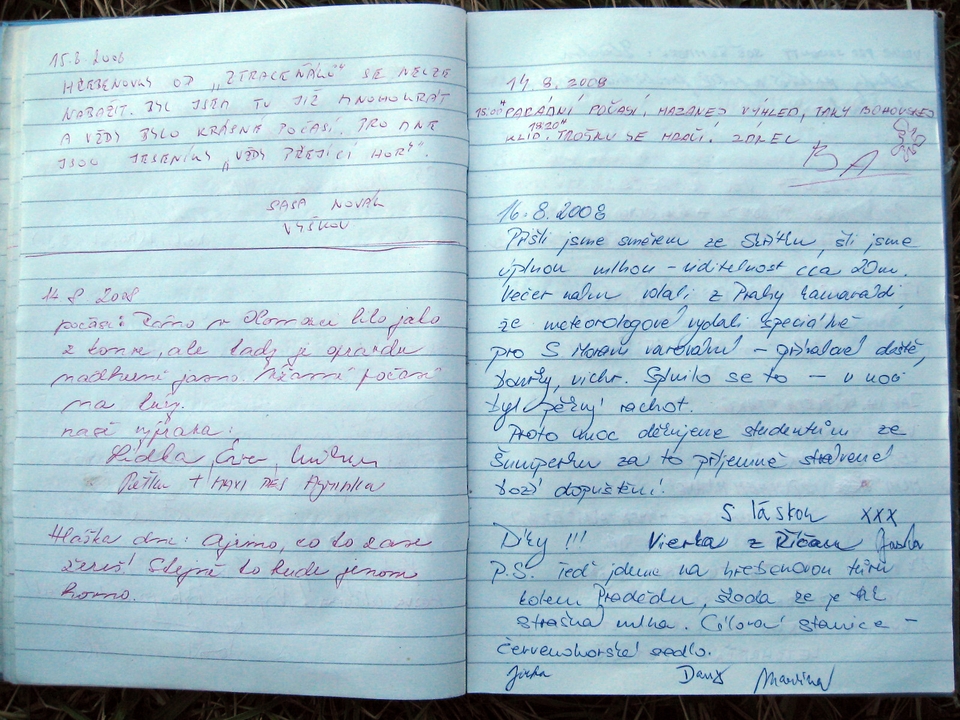 15.8 2008
HŘEBENOVKY OD „ZTRACENÁKŮ" SE NELZE
NABAŽIT. BYL JSEM TU JIŽ MNOHOKRÁT
A VŽDY BYLO KRÁSNÉ POČASÍ. PRO MNE
JSOU JESENÍKY „VŽDY PŘEJÍCÍ HORY".
SAŠA NOVÁK
VYŠKOV
14 8 2008
počasí: Ráno v Olomouci lilo jako
z konve, ale tady je opravdu
nádherně jasno. počasí
na túry.
naše výprava:
Liduška, Eva,
+ HAVÍ PES Agrinka
Hláška dne: Ajrino, co to zase
žereš! Stejně to bude jenom
hovno.
14.8.2008
15:00 PARÁDNÍ POČASÍ, MAZANEJ VÝHLED, TAKY BOHOVSKEJ
KLID. 18:20 TROŠKU SE MRAČÍ. ZDAREC
BA
16.8.2008
Přišli jsme směrem ze Skřítku, šli jsme
úplnou mlhou – viditelnost cca 20m.
Večer nám volali z Prahy kamarádi,
že meteorologové vydali speciálně
pro S Moravu varování – přívalové deště,
bouřky, vichr. Splnilo se to – v noci
byl pěkný rachot.
Proto moc děkujeme studentům ze
Šumperku za to příjemně strávené
boží dopuštění.
S láskou xxx
Díky !!! Vierka z Říčan
P.S. Teď jdeme na hřebenovou túru
kolem Pradědu, škoda že je
strašná mlha. Cílová stanice –
červenohorské sedlo.
Jirka Dan Martina